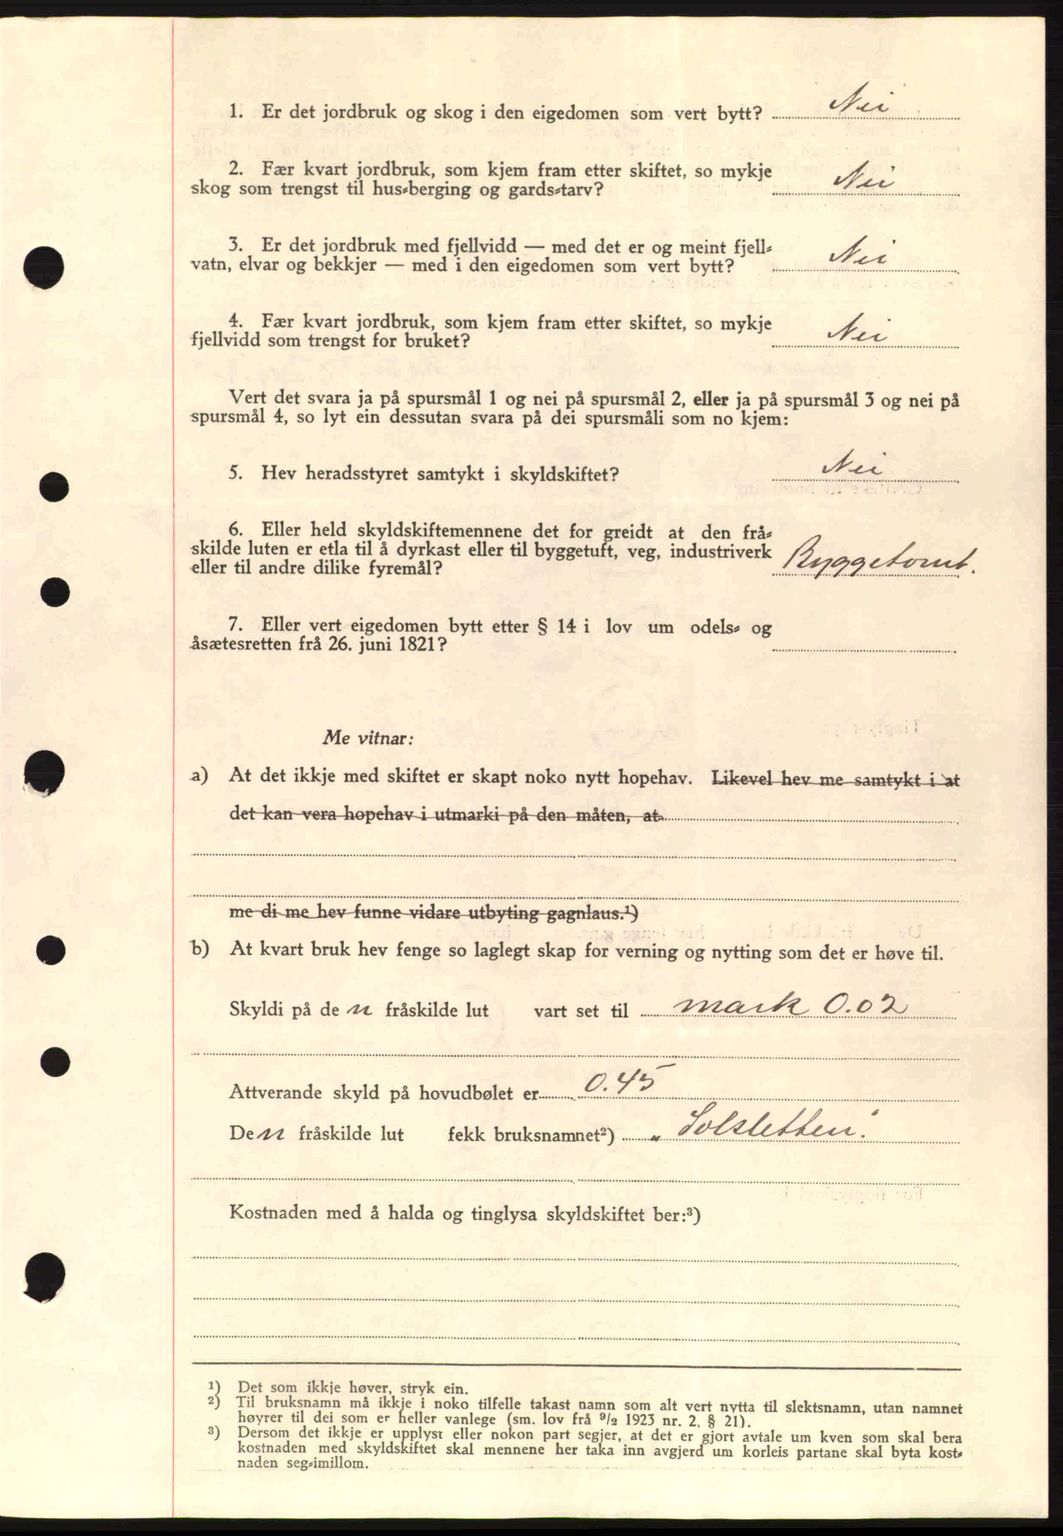 1. Er det jordbruk og skog i den eigedomen som vert bytt? Nei
2. Fær kvart jordbruk, som kjem fram etter skiftet, so mykje
skog som trengst til hus-berging og gards-tarv? Nei
3. Er det jordbruk med fjellvidd — med det er og meint fjell-
vatn, elvar og bekkjer — med i den eigedomen som vert bytt? Nei
4. Fær kvart jordbruk, som kjem fram etter skiftet, so mykje
fjellvidd som trengst for bruket? Nei
Vert det svara ja på spursmål 1 og nei på spursmål 2, eller ja på spursmål 3 og nei på
spursmål 4, so lyt ein dessutan svara på dei spursmåli som no kjem:
5. Hev heradsstyret samtykt i skyldskiftet? Nei
6. Eller held skyldskiftemennene det for greidt at den frå-
skilde luten er etla til å dyrkast eller til byggetuft, veg, industriverk
eller til andre dilike fyremål? Byggetomt.
7. Eller vert eigedomen bytt etter § 14 i lov um odels- og
åsætesretten frå 26. juni 1821?
Me vitnar:
a) At det ikkje med skiftet er skapt noko nytt hopehav. Likevel hev me samtykt i at
det kan vera hopehav i utmarki på den måten, at
me di me hev funne vidare utbyting gagnlaus.¹)
b) At kvart bruk hev fenge so laglegt skap for verning og nytting som det er høve til.
Skyldi på de n fråskilde lut vart set til mark 0.02
Attverande skyld på hovudbølet er 0.45
De n fråskilde lut fekk bruksnamnet²) „Solsletten".
Kostnaden med å halda og tinglysa skyldskiftet ber:³)
¹) Det som ikkje høver, stryk ein.
²) Til bruksnamn må ikkje i noko tilfelle takast namn som alt vert nytta til slektsnamn, utan namnet
høyrer til dei som er heller vanlege (sm. lov frå ⁹/₂ 1923 nr. 2, § 21).
³) Dersom det ikkje er upplyst eller nokon part segjer, at det er gjort avtale um kven som skal bera
kostnaden med skyldskiftet skal mennene her taka inn avgjerd um korleis partane skal byta kost-
naden seg-imillom.